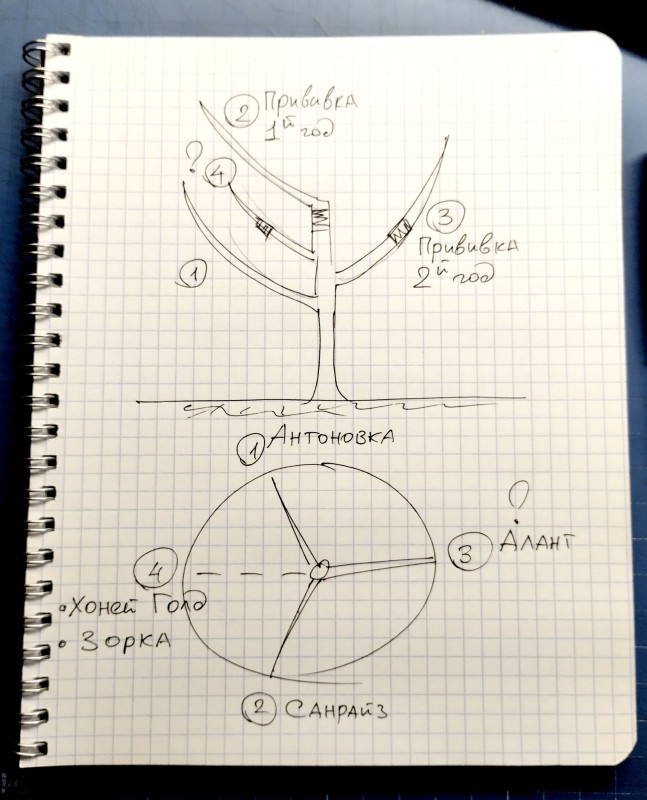 ② Прививка
1й год
?
④
③
Прививка
2й год
①
① Антоновка
?
③ Алант
④
• Хоней Голд
• Зорка
② Санрайз